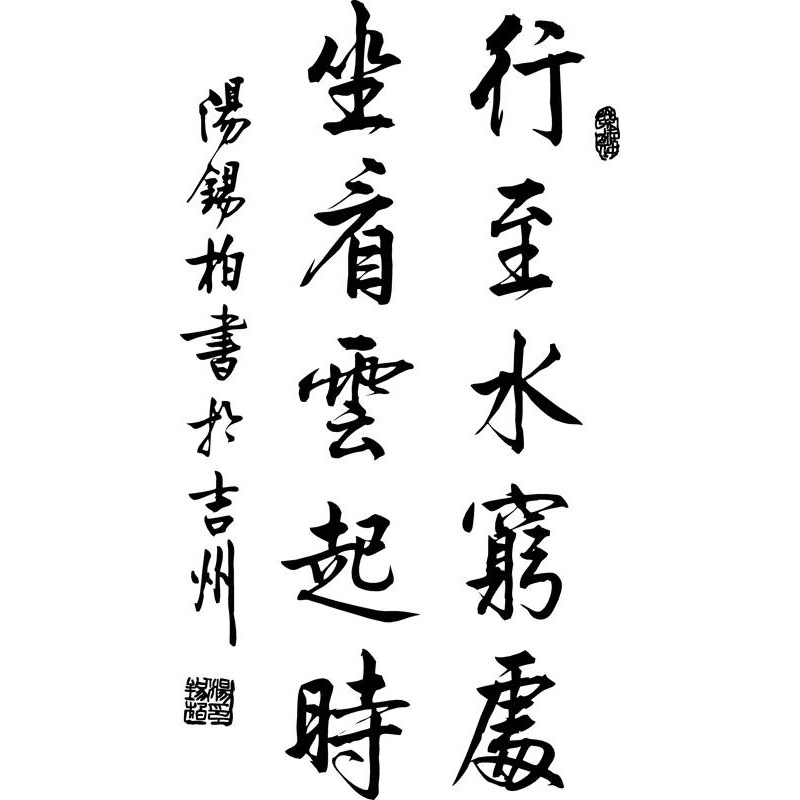 行至水窮處
坐看雲起時
湯錫柏書於吉州